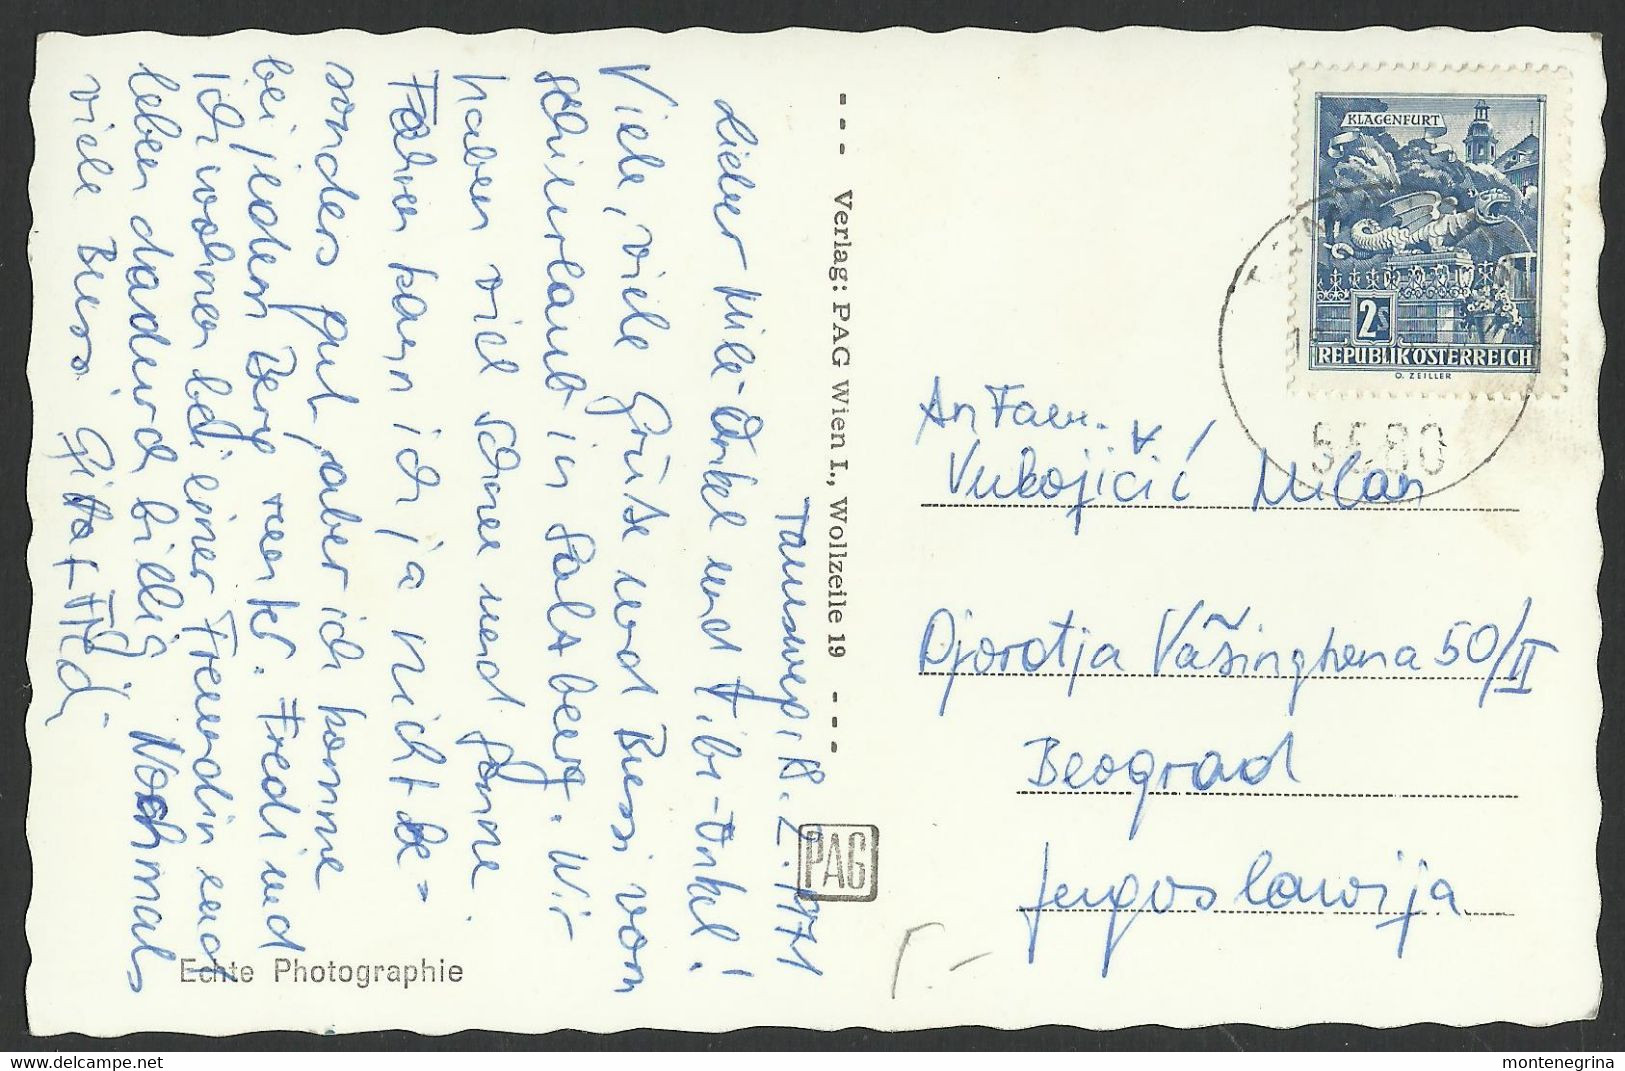 Tamsweg, 18.2.1971
Lieber Mile-Onkel und Tibi-Onkel!
Viele, viele Grüße und Bussi von
Schiurlaub in Salzberg. Wir
haben viel Schnee und Sonne.
Fahren kann ich ja nicht be=
sonders gut, aber ich komme
bei jedem Berg runter. Fredi und
ich wohnen bei einer Freundin und
leben dadurch billig. Nochmals
viele Bussi Gitta + Fredi
Verlag: PAG Wien I., Wollzeile 19
PAG
Echte Photographie
KLAGENFURT
2s
REPUBLIK ÖSTERREICH
O. ZEILLER
5580
An Fam.
Vukojičić Milan
Djordja Vašingtona 50/II
Beograd
Jugoslawija
montenegrina